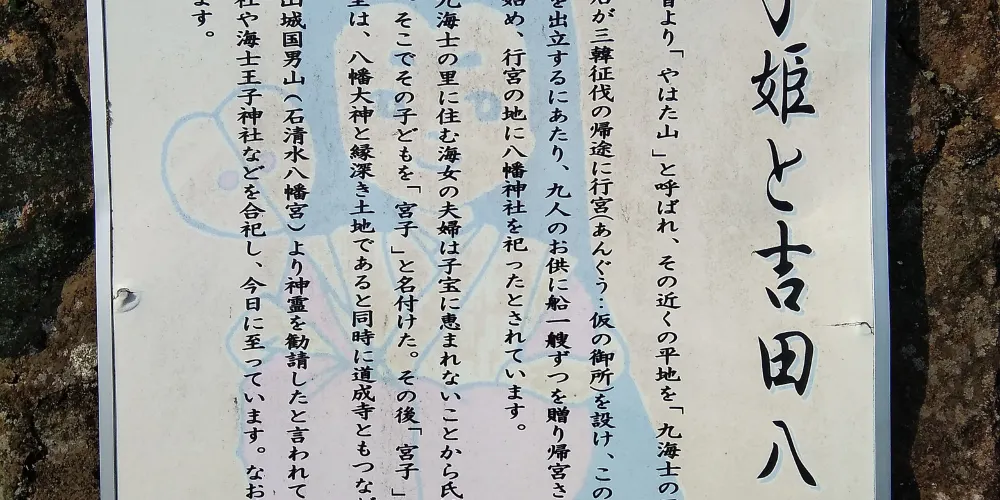 姫と吉田八
昔より「やはた山」と呼ばれ、その近くの平地を「九海士の
后が三韓征伐の帰途に行宮(あんぐう…仮の御所)を設け、この
を出立するにあたり、九人のお供に船一艘ずつを贈り帰宮さ
始め、行宮の地に八幡神社を祀ったとされています。
九海士の里に住む海女の夫婦は子宝に恵まれないことから氏
。そこでその子どもを「宮子」と名付けた。その後「宮子」
里は、八幡大神と縁深き土地であると同時に道成寺ともつなが
山城国男山(石清水八幡宮)より神霊を勧請したと言われて
社や海士王子神社などを合祀し、今日に至っています。なお
ます。